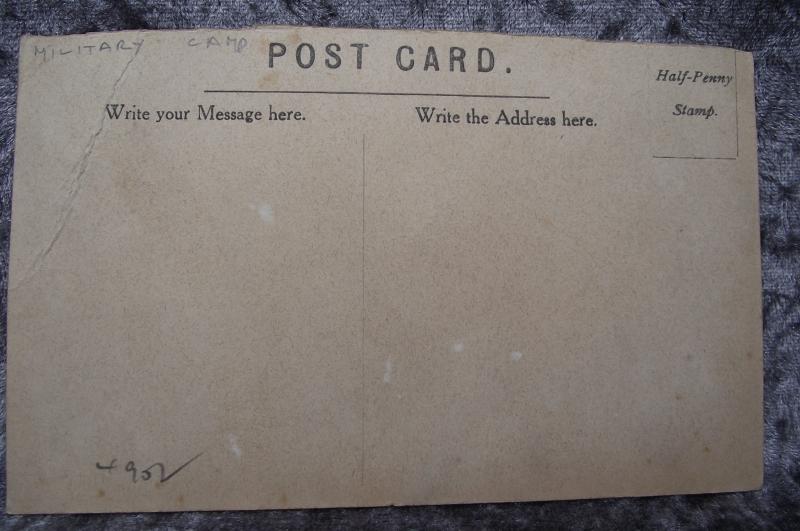 MILITARY CAMP
POST CARD.
Half-Penny
Stamp.
Write your Message here.
Write the Address here.